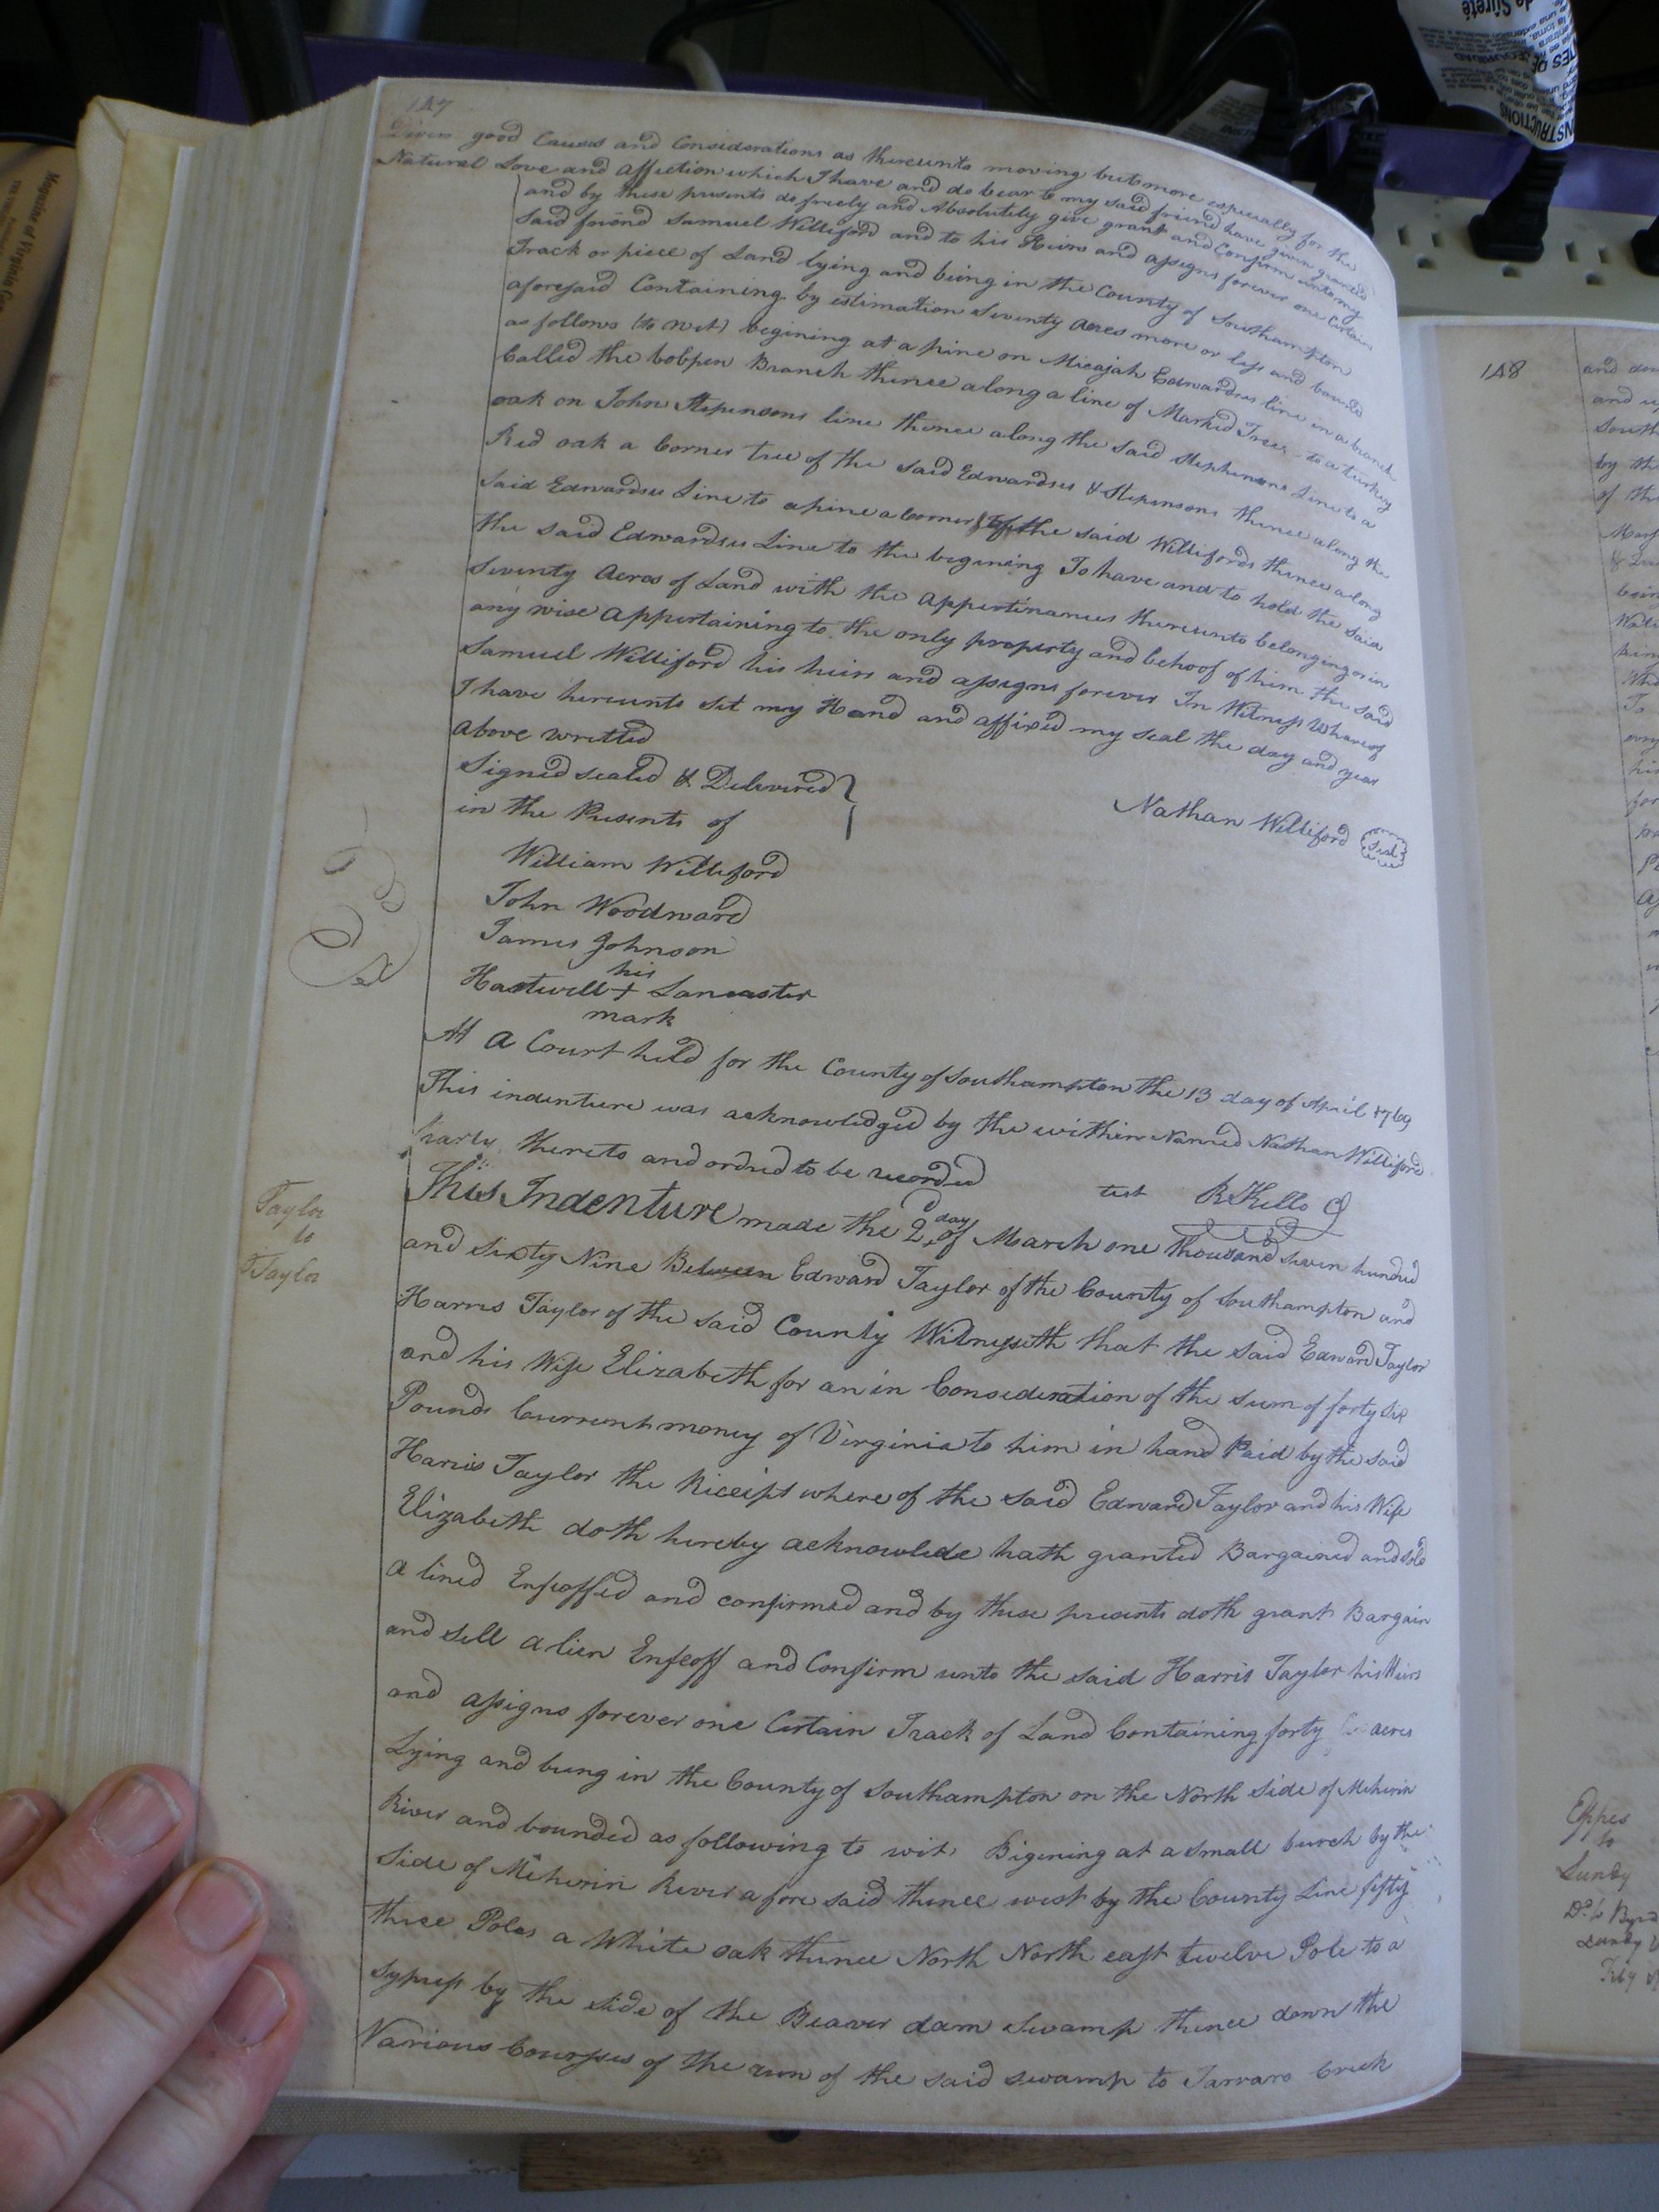 147
Divers good Causes and Considerations as thereunto moving but more especially for the
Natural Love and Affection which I have and do bear to my said friend have given granted
and by these presents do freely and Absolutely give grant and Confirm unto my
said friend Samuel Williford and to his Heirs and assigns forever one Certain
Track or piece of Land lying and being in the County of Southampton
aforesaid Containing by estimation Seventy Acres more or less and bound
as follows (to wit) begining at a pine on Micajah Edwardses line in a branch
Called the Branch thence along a line of Marked Trees to a turkey
oak on John Stepensons line thence along the said Stephensons Line to a
Red oak a Corner tree of the said Edwardses & Stepensons thence along the
said Edwardses Line to a pine a Corner of the said Willifords thence along
the said Edwardses Line to the begining To have and to hold the said
Seventy Acres of Land with the Appertinances thereunto belonging or in
any wise Appertaining to the only property and behoof of him the said
Samuel Williford his heirs and assigns forever In Witness Whareof
I have hereunto set my Hand and affixed my seal the day and year
above writted
Signed sealed & Delivered
in the Presents of
Nathan Williford Seal
William Williford
John Woodward
James Johnson
his
Hartwell + Lancaster
mark
At a Court held for the County of Southampton the 13 day of April 1769
This indenture was acknowledged by the within Named Nathan Williford
party thereto and ordred to be recorded
test RKello
Taylor
to
Taylor
This Indenture made the 2d day of March one thousand seven hundred
and Sixty Nine Between Edward Taylor of the County of Southampton and
Harris Taylor of the said County Witnesseth that the said Edward Taylor
and his Wife Elizabeth for an in Consideration of the sum of forty six
Pounds Currunt money of Virginia to him in hand Paid by the said
Harris Taylor the Riceipt where of the said Edward Taylor and his Wife
Elizabeth doth hereby acknowlede hath granted Bargained and sold
a lined Enfeoffed and confirmed and by these presents doth grant Bargain
and sell a lien Enfeoff and Confirm unto the said Harris Taylor his Heirs
and assigns forever one Certain Track of Land Containing forty acres
Lying and being in the County of Southampton on the North side of Meherin
River and bounded as following to wit Bigining at a small burch by the
side of Meherin River a fore said thence west by the County Line fifty
three Poles a White oak thence North North east twelve Pole to a
sypress by the side of the Beaver dam swamp thence down the
Various Courses of the run of the said swamp to Tarraro Creek
148
and
and
South
by the
of the
being
To
Eppes
to
Lundy